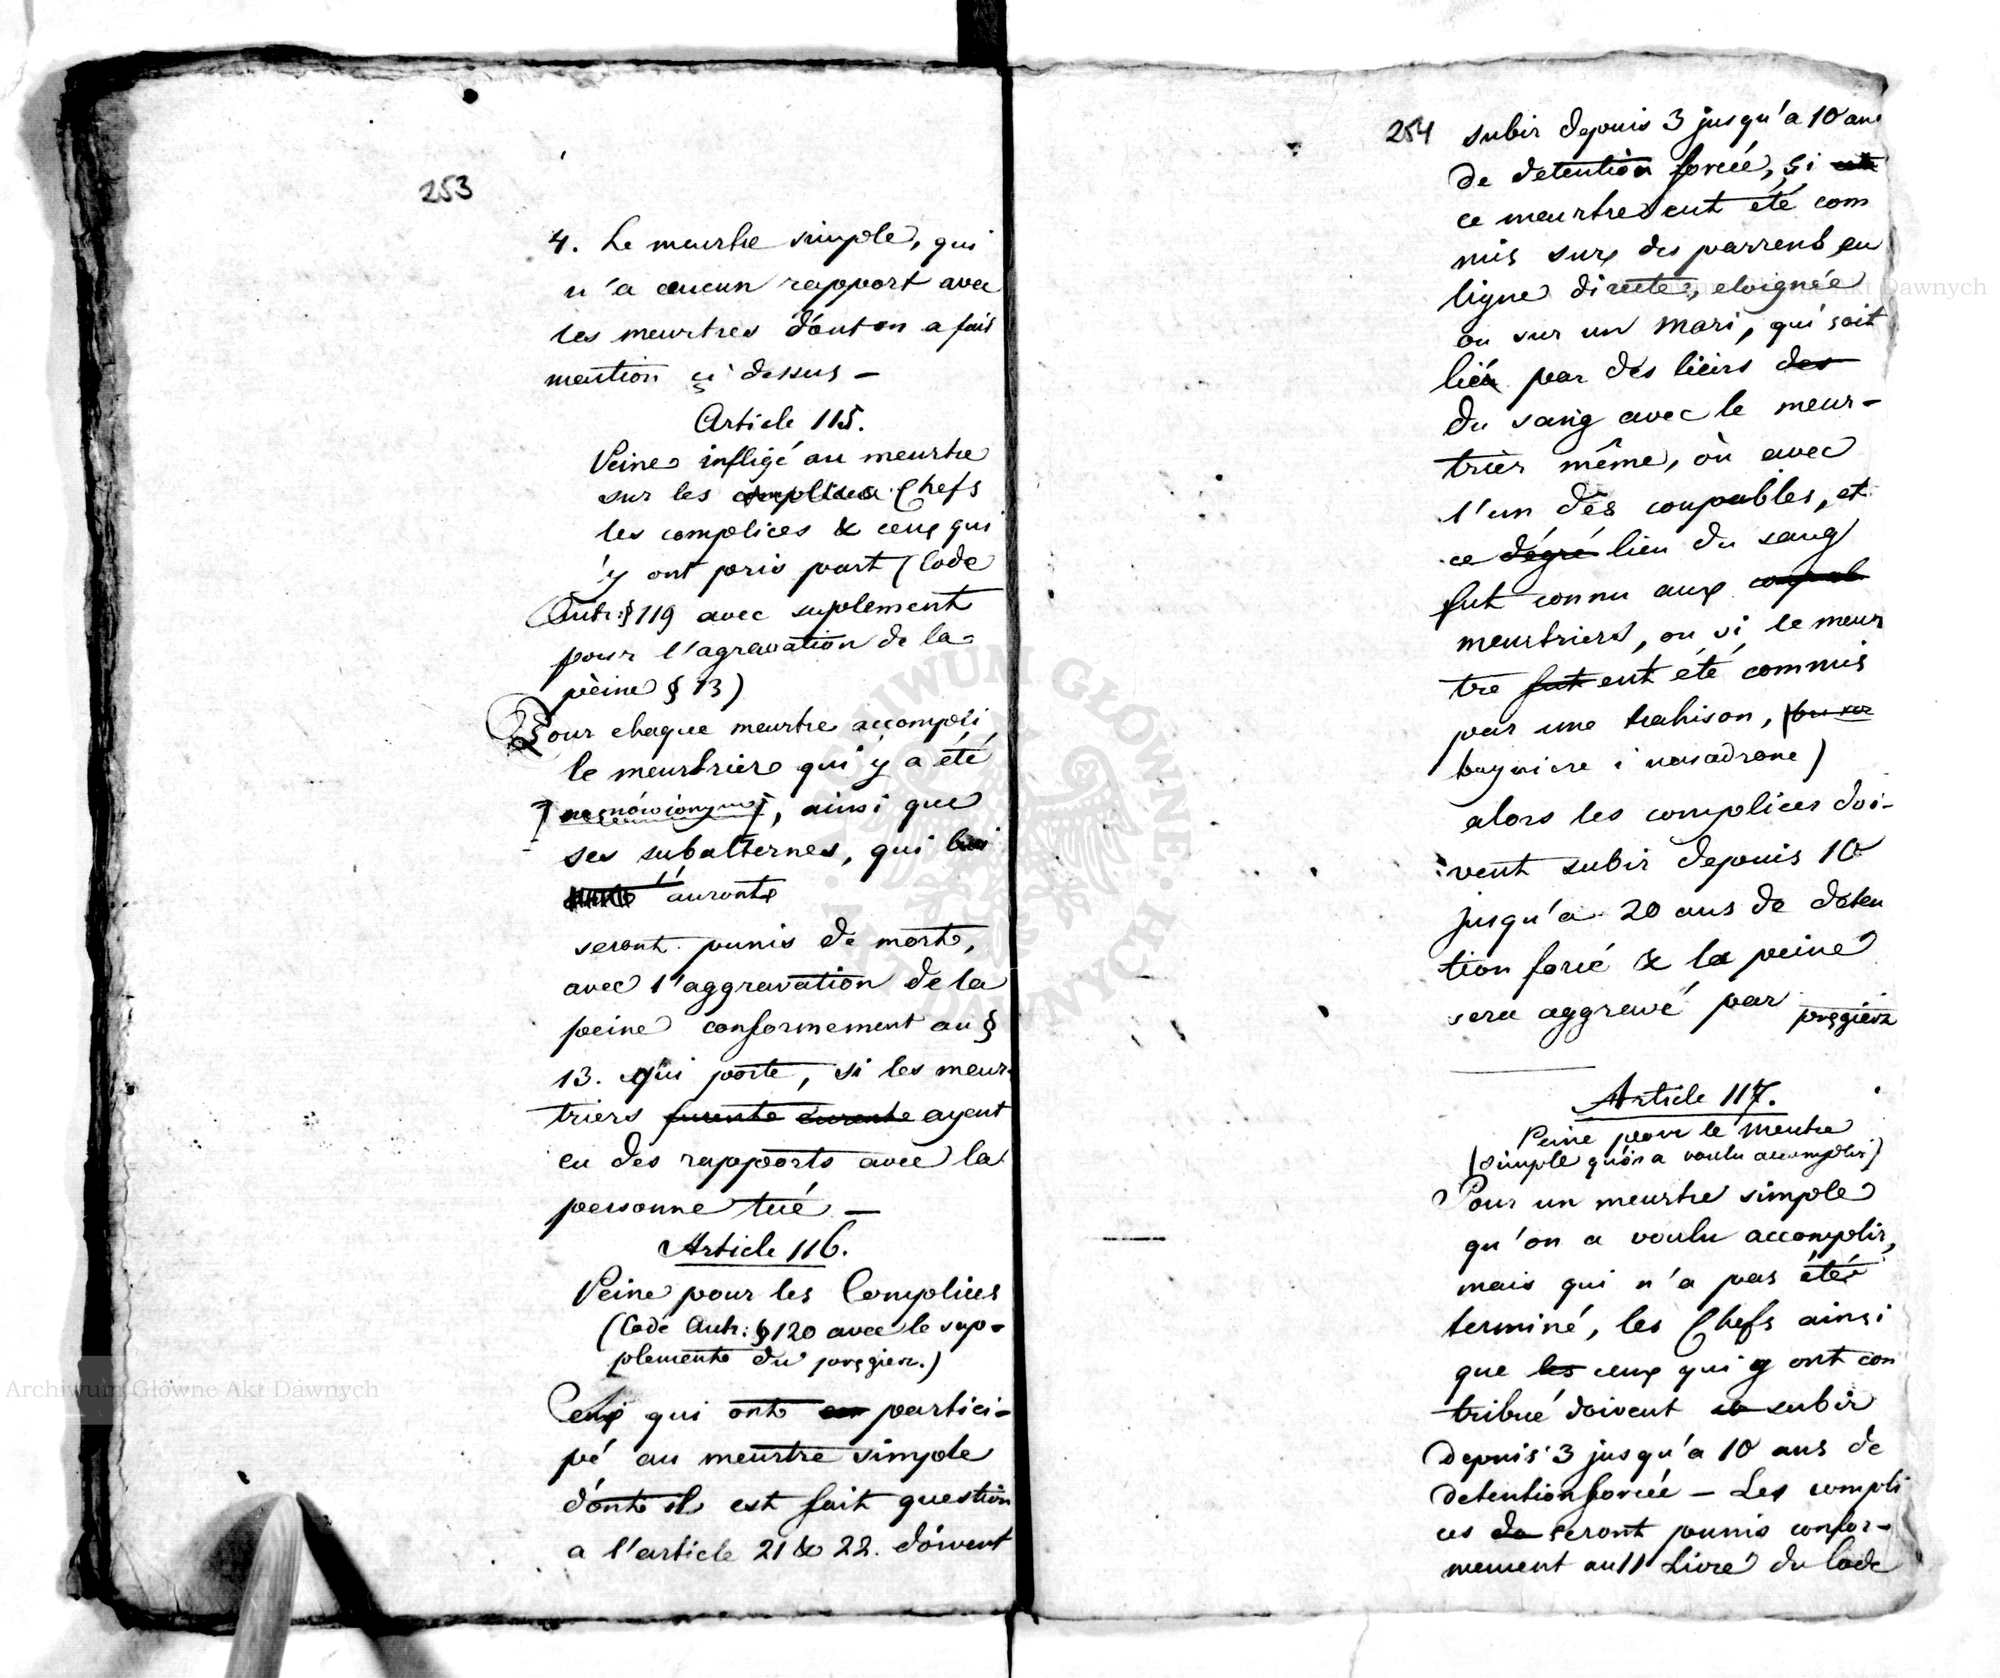 253
4. Le meurtre simple, qui
n'a aucun rapport avec
les meurtres dont on a fait
mention çi dessus —
Article 115.
Peine infligé au meurtre
sur les complices Chefs
les complices & ceux qui
y ont pris part (Code
Autr: § 119 avec suplement
pour l'agravation de la
peine § 13)
Pour chaque meurtre accompli
le meurtrier qui y a été
, ainsi que
ses subalternes, qui
auront
seront punis de mort,
avec l'aggravation de la
peine conformement au §
13. qui porte, si les meur-
triers furent eurent ayent
eu des rapports avec la
personne tué —
Article 116.
Peine pour les Complices
(Code Autr: § 120 avec le sup-
plement du pręgierz.)
Ceux qui ont en partici-
pé au meurtre simple
dont il est fait question
a l'article 21 & 22. doivent
254
subir depuis 3 jusqu'a 10 ans
de detention forcée, si
ce meurtre eut été com
mis sur des parrents en
ligne directe, eloignée
ou sur un mari, qui soit
lié par des liens des
du sang avec le meur-
trier même, où avec
l'un des coupables, et
ce dégré lien du sang
fut connu aux
meurtriers, ou si le meur
tre fut eut été commis
par une trahison,
alors les complices doi-
vent subir depuis 10
jusqu'a 20 ans de deten
tion forcé & la peine
sera aggravé par pręgierz
Article 117.
Peine pour le meutre
(simple qu'on a voulu accomplir)
Pour un meurtre simple
qu'on a voulu accomplir,
mais qui n'a pas été
terminé, les Chefs ainsi
que les ceux qui y ont con
tribué doivent subir
depuis 3 jusqu'a 10 ans de
detention forcée — Les compli
ces de seront punis confor-
mement au II Livre du Code
Archiwum Główne Akt Dawnych
Archiwum Główne Akt Dawnych
ARCHIWUM GŁÓWNE AKT DAWNYCH